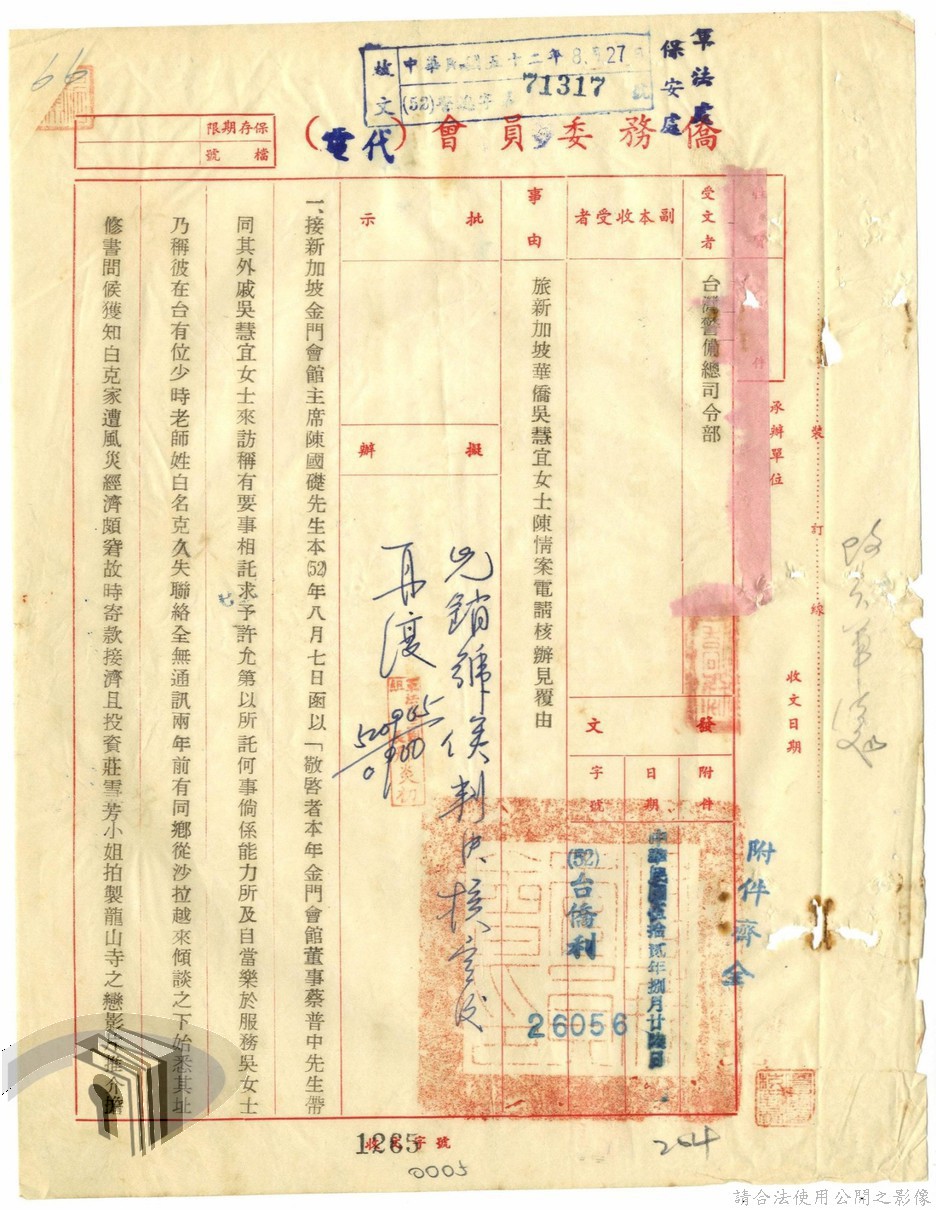 軍法處
保安處
中華民國五十二年8月27日
71317
號
僑務委員會（代電）
保存期限
檔號
受文者
台灣警備總司令部
副本收受者
事由
旅新加坡華僑吳慧宜女士陳情案電請核辦見覆由
批示
擬辦
發文
附件
日期
字號
中華民國伍拾貳年捌月廿陸日
(52)台僑利
26056
附件齊全
承辦單位
收文日期
裝訂線
一、接新加坡金門會館主席陳國礎先生本(52)年八月七日函以「敬啓者本年金門會館董事蔡普中先生帶
同其外戚吳慧宜女士來訪稱有要事相託求予許允第以所託何事倘係能力所及自當樂於服務吳女士
乃稱彼在台有位少時老師姓白名克久失聯絡全無通訊兩年前有同鄉從沙拉越來傾談之下始悉其址
修書問候獲知白克家遭風災經濟頗窘故時寄款接濟且投資莊雪芳小姐拍製龍山寺之戀影片推介擔
收字號
1265
0005
204
請合法使用公開之影像